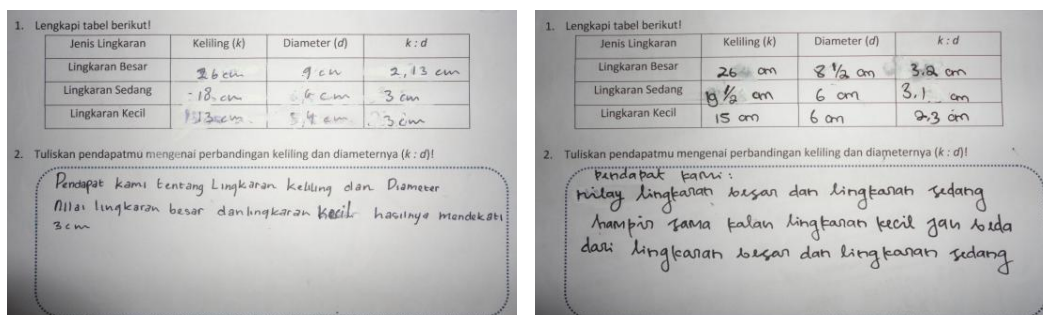 1. Lengkapi tabel berikut!
Jenis Lingkaran Keliling (k) Diameter (d) k : d
Lingkaran Besar 26 cm 9 cm 2,13 cm
Lingkaran Sedang 18 cm cm 3 cm
Lingkaran Kecil 13 cm cm 3 cm
2. Tuliskan pendapatmu mengenai perbandingan keliling dan diameternya (k : d)!
Pendapat kami tentang Lingkaran keliling dan Diameter
nilai lingkaran besar dan lingkaran kecil hasilnya mendekati
3 cm
1. Lengkapi tabel berikut!
Jenis Lingkaran Keliling (k) Diameter (d) k : d
Lingkaran Besar 26 cm 8 1/2 cm 3.2 cm
Lingkaran Sedang 19 1/2 cm 6 cm 3.1 cm
Lingkaran Kecil 15 cm 6 cm 2,3 cm
2. Tuliskan pendapatmu mengenai perbandingan keliling dan diameternya (k : d)!
pendapat kami :
nilay lingkaran besar dan lingkaran sedang
hampir sama kalau lingkaran kecil jau beda
dari lingkaran besar dan lingkaran sedang